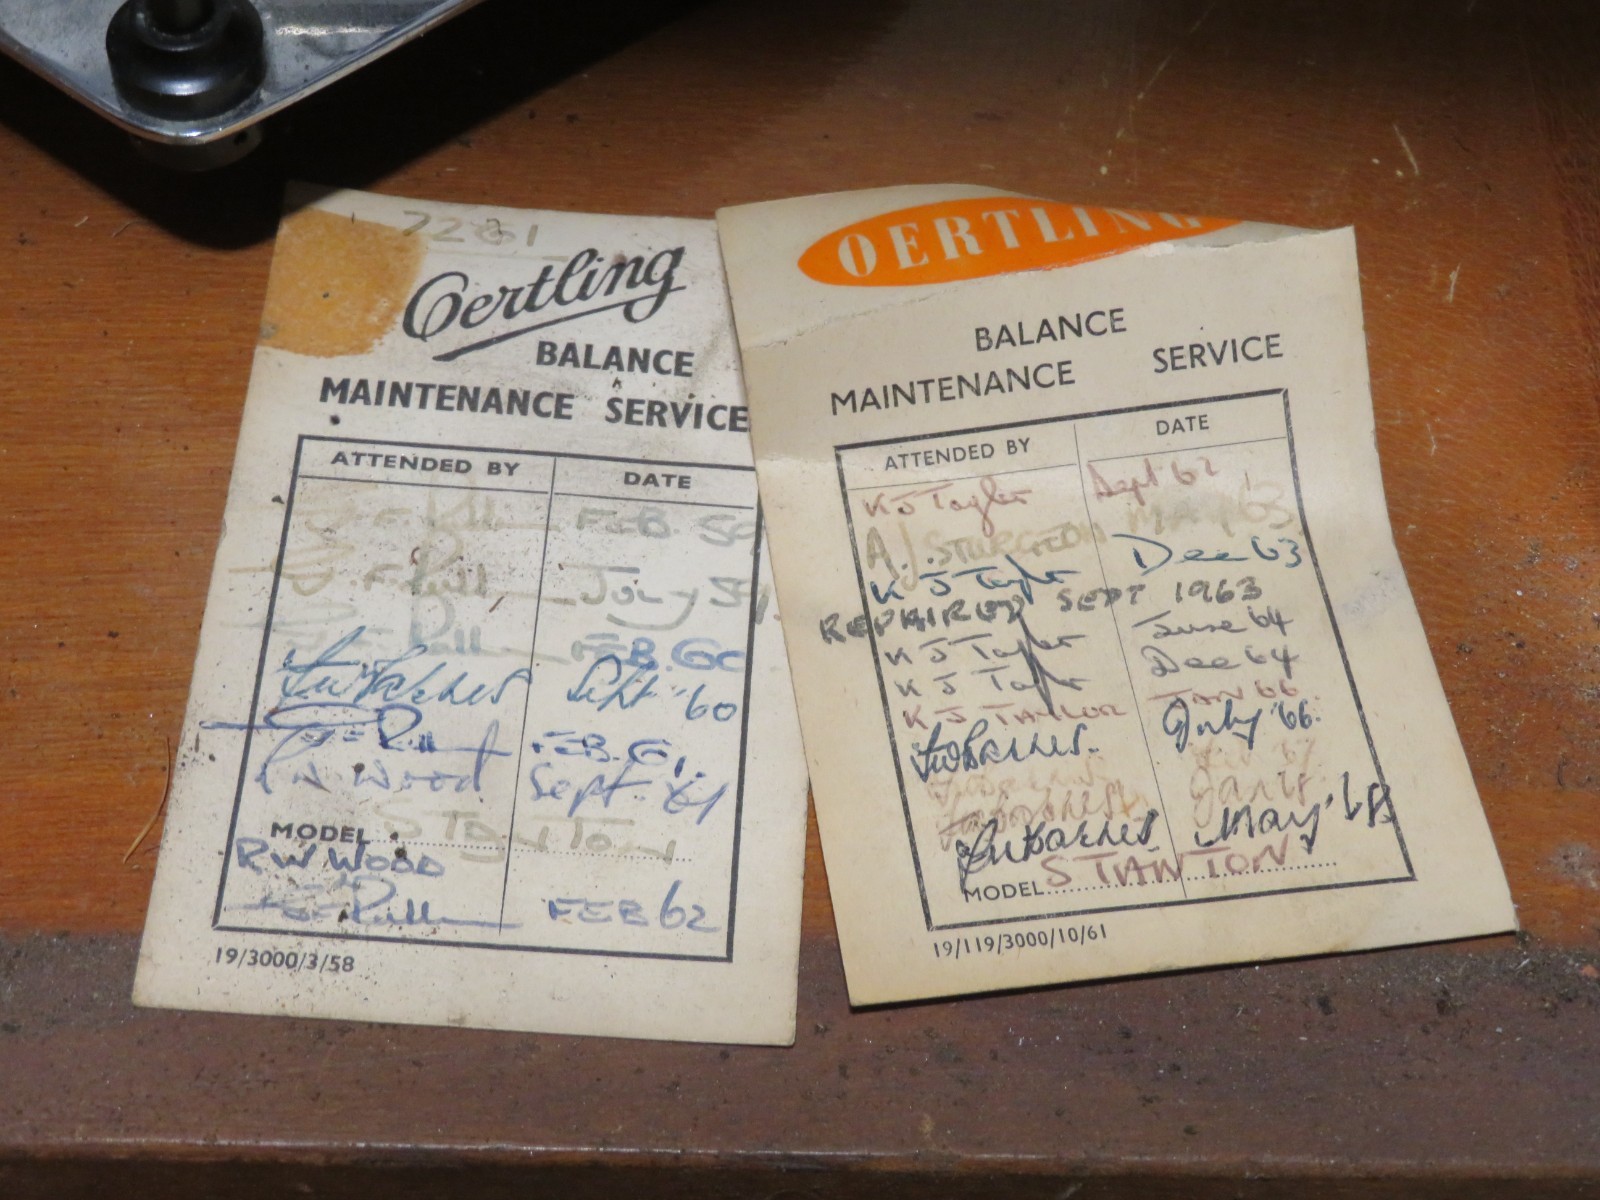 Oertling
BALANCE
MAINTENANCE SERVICE
ATTENDED BY DATE
FEB. 59
July 59.
FEB. 60
Sept '60
FEB. 61.
R W Wood Sept. '61
STANTON
MODEL
R W WOOD
FEB 62
19/3000/3/58
OERTLING
BALANCE
MAINTENANCE SERVICE
ATTENDED BY DATE
K J Taylor Sept 62
A.J. STURGEON MAY 63
K J Taylor Dec 63
REPAIRED SEPT 1963
K J Taylor June 64
K J Taylor Dec 64
K J TAYLOR JAN 66.
July '66.
May '68
MODEL STANTON
19/119/3000/10/61